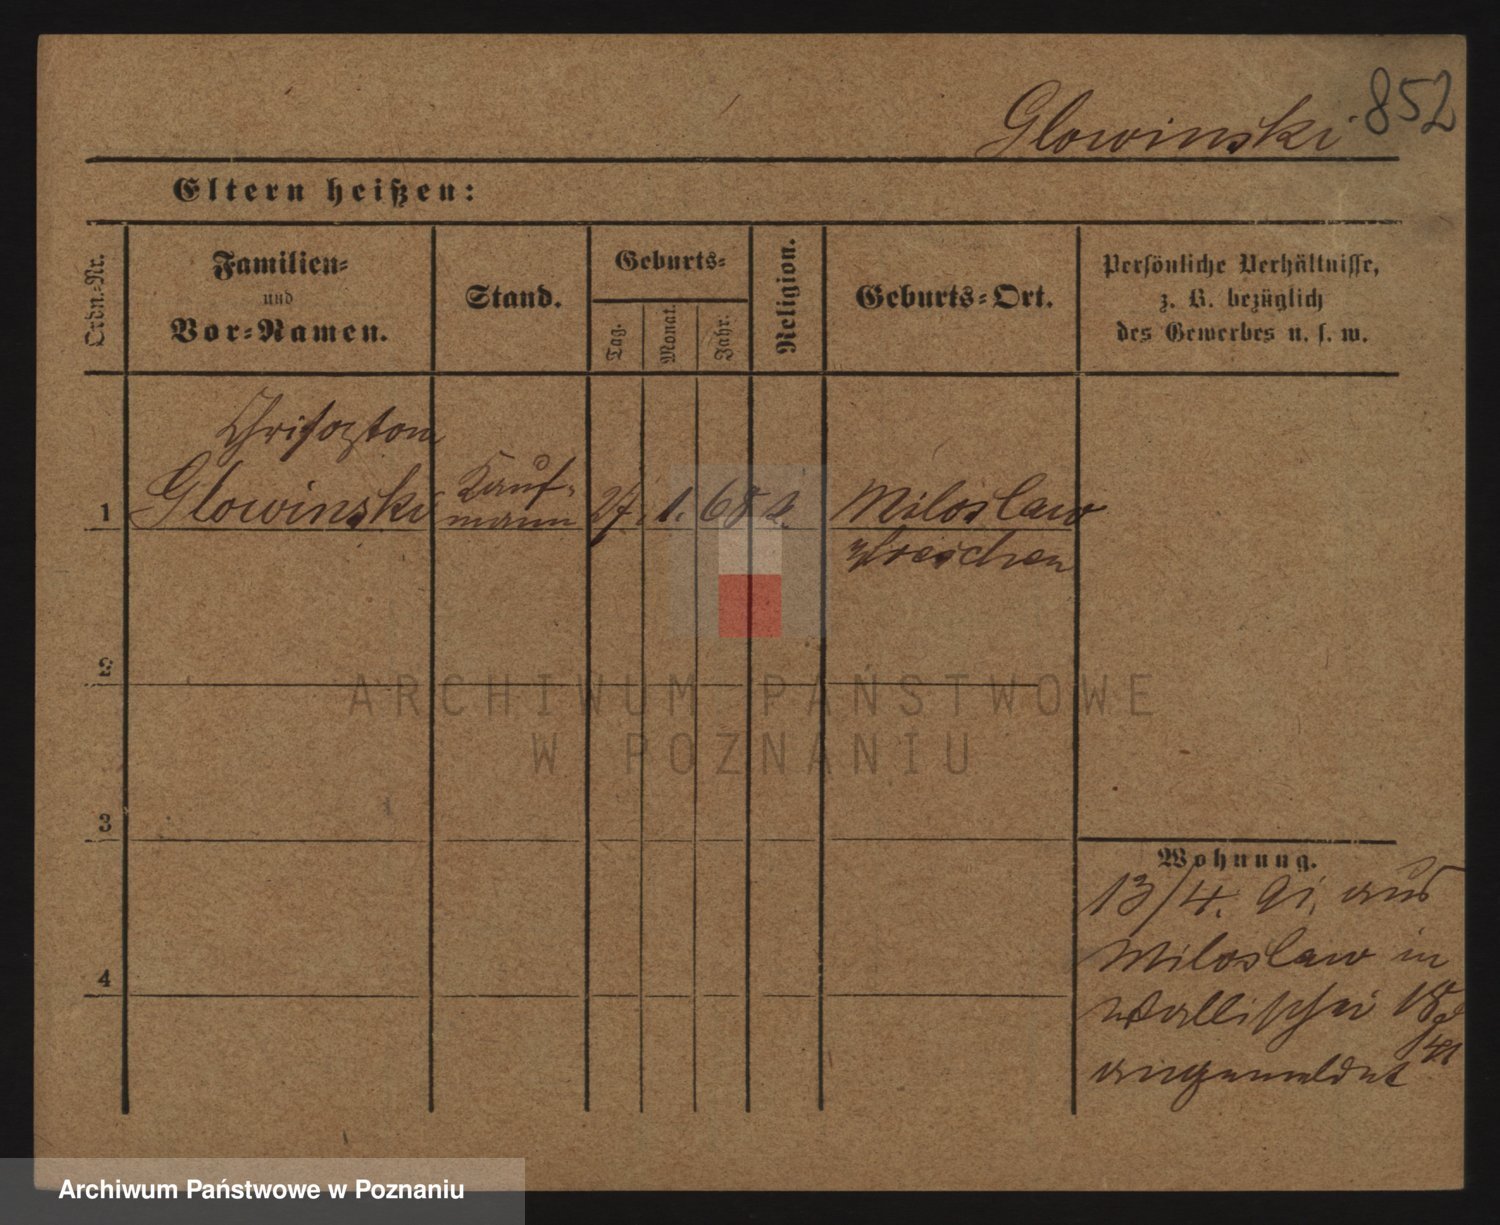 Glowinski 852
Eltern heißen:
Ordn.-Nr.
Familien-
und
Vor-Namen.
Stand.
Geburts-
Tag.
Monat.
Jahr.
Religion.
Geburts-Ort.
Persönliche Verhältnisse,
z. B. bezüglich
des Gewerbes u. s. w.
Chrisoztom
1 Glowinski
Kauf-
mann
27. 1. 68 k.
Miloslaw
Wreschen
2
3
4
Wohnung.
13/4. 91. aus
Miloslaw in
Wallischei 18
angemeldet
ARCHIWUM PAŃSTWOWE
W POZNANIU
Archiwum Państwowe w Poznaniu